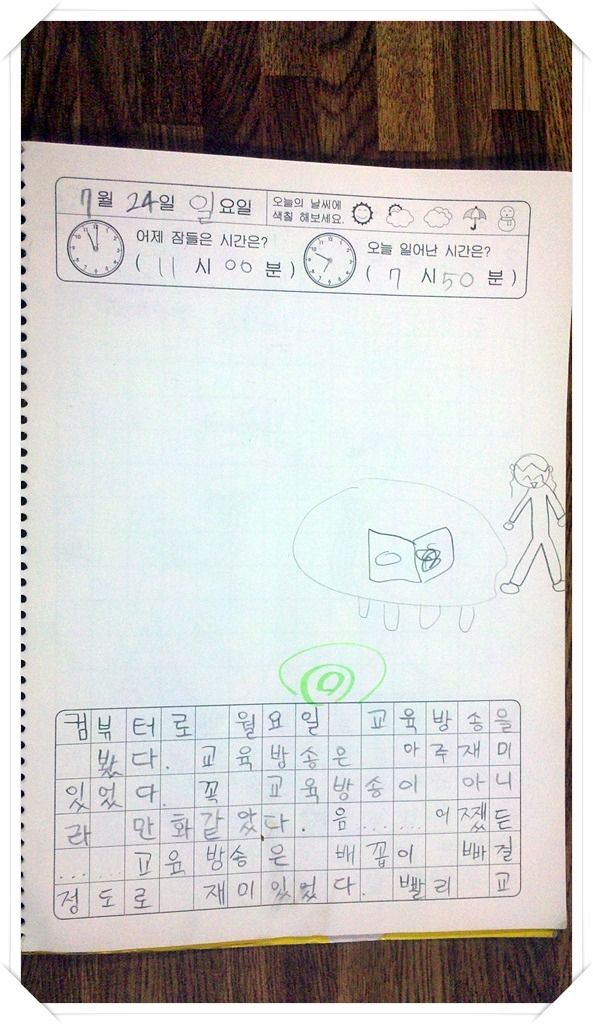 7월 24일 일요일
오늘의 날씨에
색칠 해보세요.
어제 잠들은 시간은?
( 11 시 00 분 )
오늘 일어난 시간은?
( 7 시 50 분 )
컴뷰터로 월요일 교육방송을
봤다. 교육방송은 아주재미
있었다. 꼭 교육방송이 아니
라 만화같았다. 음...... 어쨌든
...... 교육방송은 배꼽이 빠질
정도로 재미있었다. 빨리 교